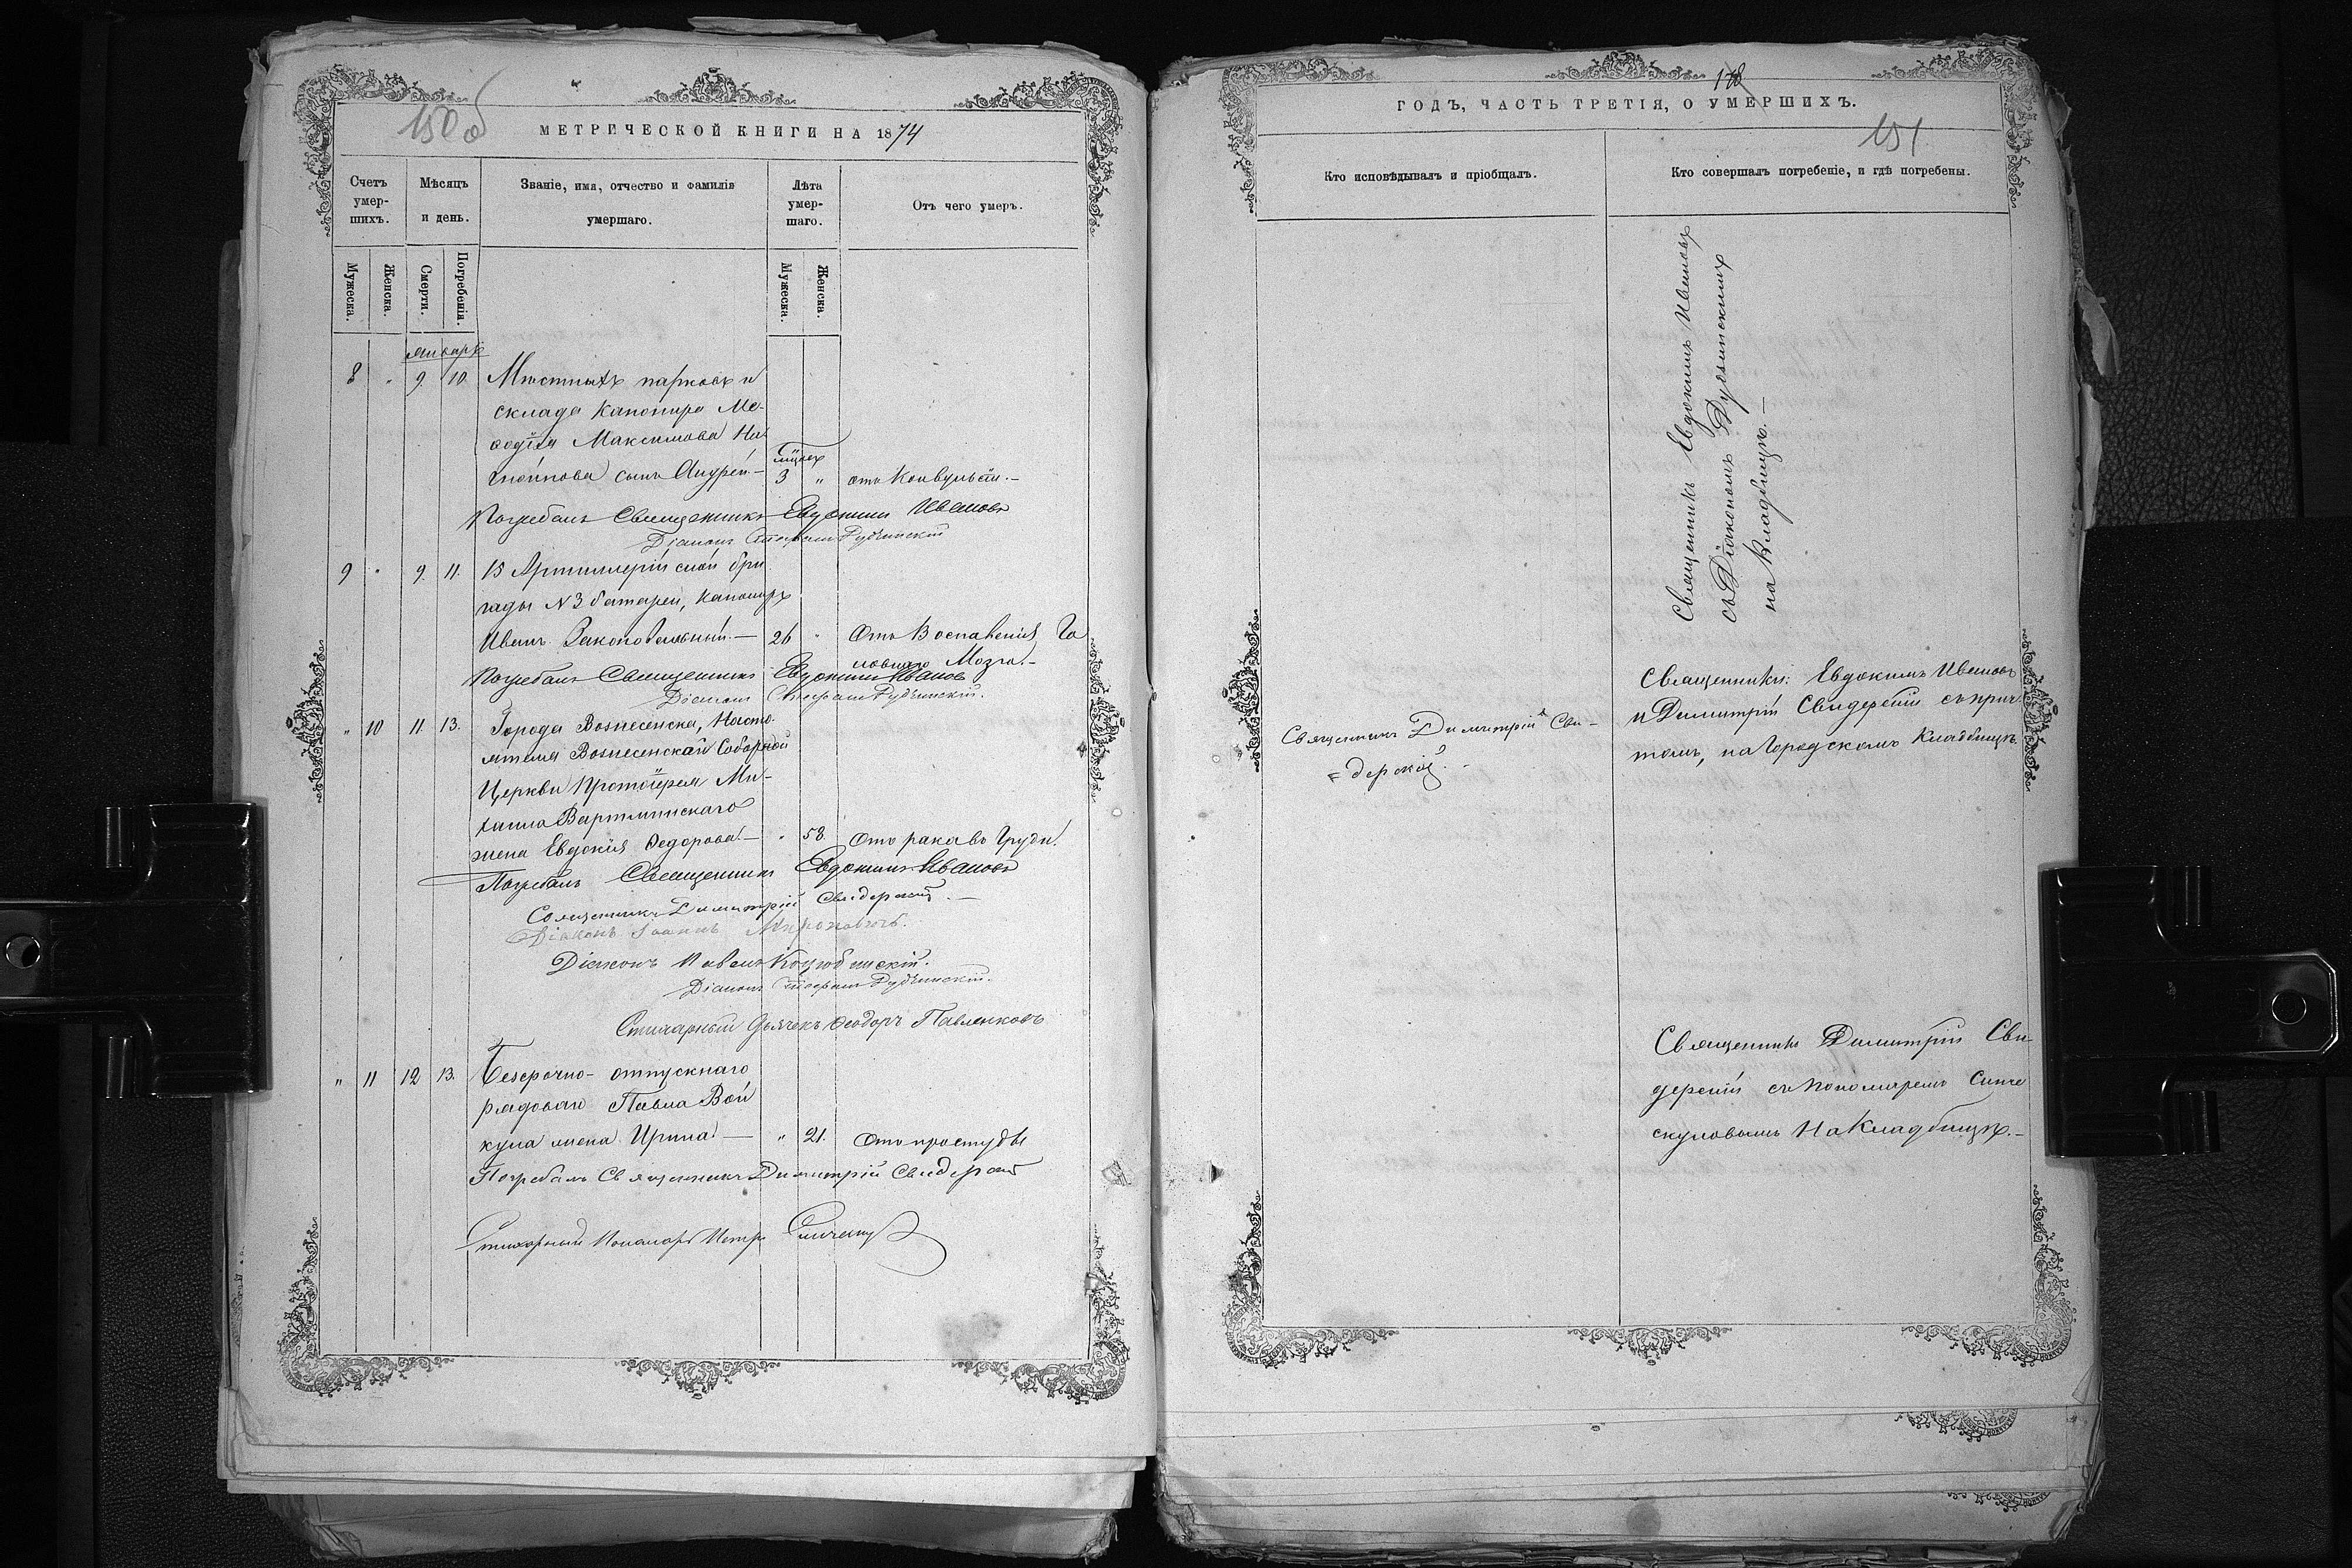 150 об
МЕТРИЧЕСКОЙ КНИГИ НА 1874
Счетъ умер- шихъ.
Мѣсяцъ и день.
Званіе, имя, отчество и фамилія умершаго.
Лѣта умер- шаго.
Отъ чего умеръ.
Мужеска.
Женска.
Смерти.
Погребенія.
Мужеска.
Женска.
Январь
8 " 9. 10. Мѣстныхъ парковъ и
склада Канонира Ме-
ѳодія Максимова
сынъ Андрей — 3 " отъ Конвульсій. —
Погребалъ Священникъ Евдокимъ Ивановъ
Діаконъ Стефанъ
9 " 9. 11. 15 Артиллерійской бри
гады N3 батареи, Канониръ
Иванъ — 26 " Отъ Воспаленія Го
ловнаго Мозга. —
Погребалъ Священникъ Евдокимъ Ивановъ
Діаконъ Стефанъ
" 10 11. 13. Города Вознесенска, Насто-
ятеля Вознесенской Соборной
Церкви Протоіерея Ми-
хаила Вартминскаго
жена Евдокія Ѳедорова — " 58. Отъ рака въ Груди.
Погребалъ Священникъ Евдокимъ Ивановъ
Священникъ Димитрій Свидерскій. —
Діаконъ Іоаннъ Мироновичъ.
Діаконъ Павелъ Коцюбинскій.
Діаконъ Стефанъ
Стихарный Дьячекъ Ѳеодоръ Павленковъ
" 11 12 13. Безсрочно-отпускнаго
рядоваго Павла Вой
кула жена Ирина — " 21. Отъ простуды
Погребалъ Священникъ Димитрій Свидерскій
Стихарный Пономарь Петръ
178
ГОДЪ, ЧАСТЬ ТРЕТІЯ, О УМЕРШИХЪ.
151
Кто исповѣдывалъ и пріобщалъ.
Кто совершалъ погребеніе, и гдѣ погребены.
Священникъ Евдокимъ Ивановъ
съ Діакономъ
на Кладбищѣ. —
Священникъ Димитрій Сви-
=дерскій.
Священники: Евдокимъ Ивановъ
и Димитрій Свидерскій съ прич-
томъ, на Городскомъ Кладбищѣ.
Священникъ Димитрій Сви-
дерскій съ Пономаремъ Синче
скуловымъ На Кладбищѣ. —